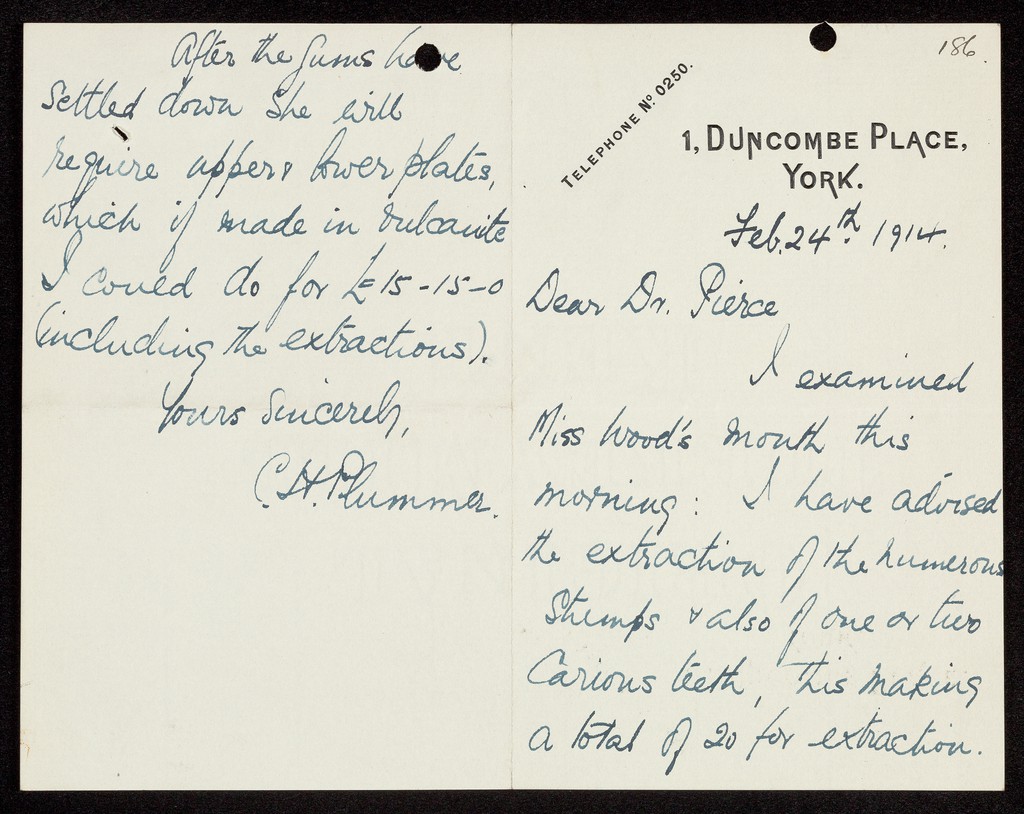 186.
TELEPHONE Nº 0250.
1, DUNCOMBE PLACE,
YORK.
Feb. 24th. 1914.
Dear Dr. Pierce
I examined
Miss Wood's mouth this
morning: I have advised
the extraction of the numerous
Stumps & also of one or two
Carious teeth, this making
a total of 20 for extraction.
After the gums have
settled down she will
require upper & lower plates,
which if made in vulcanite
I could do for £15-15-0
(including the extractions).
Yours Sincerely,
C. H. Plummer.